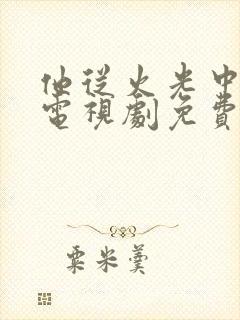 他從火光中
電視劇免費
粟米羹